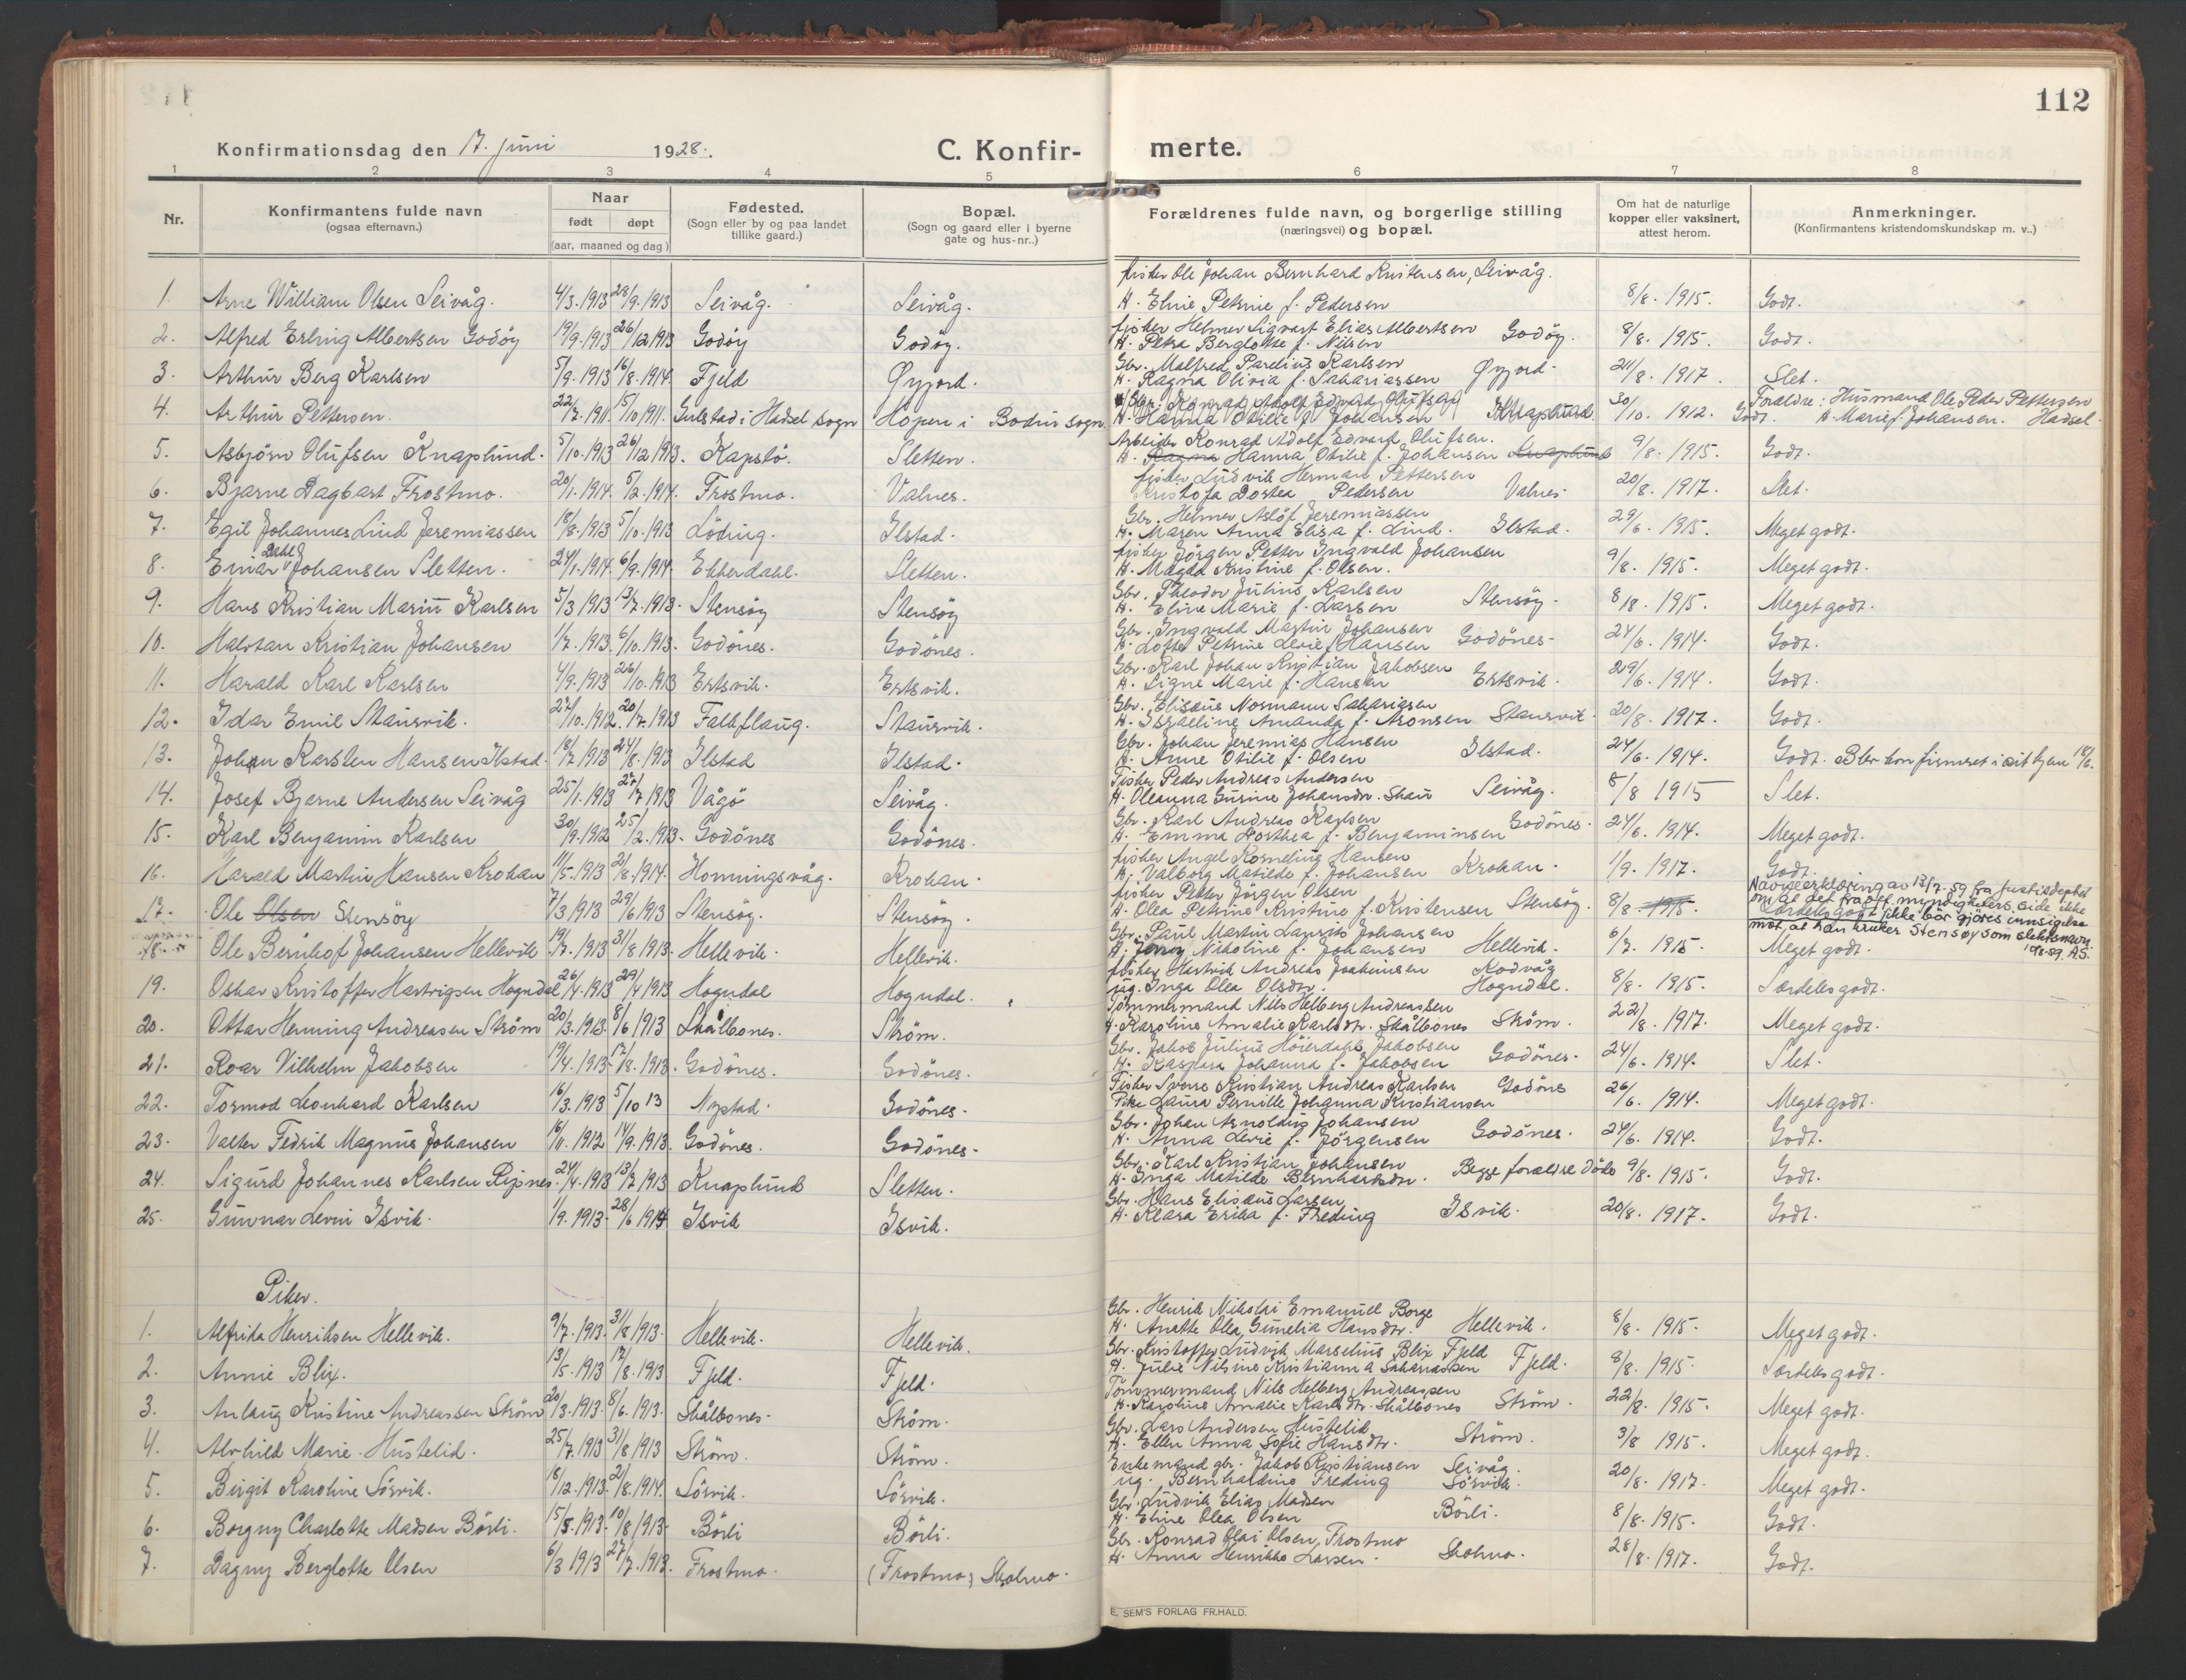 112
Konfirmationsdag den 17. juni 1928.
C. Konfir- merte.
1 2 3 4 5 6 7 8
Nr.
Konfirmantens fulde navn
(ogsaa efternavn.)
Naar
født døpt
(aar, maaned og dag)
Fødested.
(Sogn eller by og paa landet
tillike gaard.)
Bopæl.
(Sogn og gaard eller i byerne
gate og hus-nr..)
Forældrenes fulde navn, og borgerlige stilling
(næringsvei) og bopæl.
Om hat de naturlige
kopper eller vaksinert,
attest herom.
Anmerkninger.
(Konfirmantens kristendomskundskap m. v..)
fisker Ole Johan Bernhard Kristensen, Seivåg.
1. Arne William Olsen Seivåg. 4/3.1913 28/9.1913 Seivåg. Seivåg. H. Eline Petrine f. Pedersen 8/8. 1915. Godt.
fisker Helmer Sigvart Elias Albertsen
2. Alfred Erling Albertsen Godöy 19/9.1913 26/12 1913 Godöy Godöy. H. Petra Berglotte f. Nilsen Godöy. 8/8. 1915. Godt.
Gbr. Malfred Parelius Karlsen
3. Arthur Berg Karlsen 5/9.1913 16/8.1914 Fjeld Øyjord. H. Ragna Olivia f. Sakariassen Øyjord. 24/8. 1917. Slet.
Gbr. Konrad Adolf Edvard Olufsen Foreldre: Husmand Ole Peder Pettersen
4. Arthur Pettersen. 22/7.1911. 15/10 1911. Gulstad i Hadsel sogn Hopen i Bodin sogn. H. Hanna Otilie f. Johansen Knaplund. 30/10. 1912. Godt. H. Marie f. Johansen. Hadsel.
Arbeider Konrad Adolf Edvard Olufsen.
5. Asbjörn Olufsen Knaplund. 5/10.1913 26/12 1913. Kapstö. Sletten. H. Ragna Hanna Otilie f. Johansen Knaplund 9/8. 1915. Godt.
fisker Ludvik Herman Pettersen
6. Bjarne Dagbart Frostmo. 20/1.1914. 5/2.1914. Frostmo. Valnes. Kristofa Dortea Pedersen Valnes 20/8. 1917. Slet.
Gbr. Helmer Aslöf Jeremiassen
7. Egil Johannes Lind Jeremiassen 18/8.1913 5/10.1913 Löding. Ilstad. H. Maren Anna Elisa f. Lind. Ilstad. 29/6. 1915. Meget godt.
fisker Jörgen Petter Ingvald Johansen
8. Einar Dahl Johansen Sletten. 24/1.1914. 6/9.1914 Ekkerdahl. Sletten. H. Magda Kristine f. Olsen. 9/8. 1915. Meget godt.
Gbr. Theodor Julius Karlsen
9. Hans Kristian Marin Karlsen 5/3 1913 13/7.1913. Stensöy Stensöy H. Eline Marie f. Larsen Stensöy. 8/8. 1915. Meget godt.
Gbr. Ingvald Martin Johansen
10. Halvtan Kristian Johansen 1/7.1913. 6/10.1913. Godönes. Godönes. H. Lotte Petrine Levie f. Hansen Godönes. 24/6. 1914. Godt.
Gbr. Karl Johan Kristian Jakobsen
11. Harald Karl Karlsen 4/9.1913 26/10.1913 Ertsvik. Ertsvik. H. Signe Marie f. Hansen Ertsvik. 29/6. 1914. Godt.
Gbr. Eliseus Normann Sakariasen
12. Idar Emil Stausvik. 27/10.1912. 20/7.1913 Falkflaug. Stausvik. H. Israeline Amanda f. Aronsen Stausvik. 20/8. 1917. Godt.
Gbr. Johan Jeremias Hansen
13. Johan Karsten Hansen Ilstad. 18/7 1913 24/8.1913 Ilstad Ilstad. H. Anne Otilie f. Olsen Ilstad. 24/6. 1914. Godt. Blev konfirmeret i sit hjem 18/6.
Fisker Peder Andreas Andersen
14. Josef Bjarne Andersen Seivåg 25/1.1913 27/7 1913 Vågö Seivåg. H. Oleanna Gurine Johansdtr. Skau Seivåg. 8/8 1915 Slet.
Gbr. Karl Andreas Karlsen
15. Karl Benjamin Karlsen 30/9.1912 25/2.1913. Godönes Godönes. H. Emma Dorthea f. Benjaminsen Godönes. 24/6. 1914. Meget godt.
fisker Angel Kornelius Hansen
16. Harald Martin Hansen Krokan 11/5.1913 2/8.1914. Honningsvåg. Krokan. H. Valborg Matilde f. Johansen Krokan. 1/9. 1917. Godt.
fisker Petter Jörgen Olsen Navneerklæring av 13/7-59 fra Justisdeptet
om at det fra off. myndigheters side ikke
17. Ole Olsen Stensöy 7/3 1913 29/6 1913 Stensöy. Stensöy. H. Olea Petrine Kristine f. Kristensen Stensöy. 8/8. 1915. Særdeles godt ikke bör gjöres innsigelse
mot at han bruker Stensöy som slektsnavn.
Gbr. Paul Martin Laurits Johansen
18. Ole Bernhof Johansen Hellevik 19/7.1913 31/8 1913. Hellevik. Hellevik. H. Jenny Nikoline f. Johansen Hellevik. 6/7. 1915. Meget godt. A.S.
fisker Hartvik Andreas Joakimsen Kodvåg
19. Oskar Kristoffer Hartvigsen Hogndal 26/4.1913 29/4 1913 Hogndal Hogndal. ug. Inga Olea Olsdtr. Hogndal. 8/8. 1915. Særdeles godt.
Tömmermand Nils Helberg Andreassen
20. Ottar Henning Andreasen Ström 20/3.1913. 8/6 1913 Skålbones. Ström. H. Karoline Amalie Karlsdtr. Skålbones Ström. 22/8. 1917. Meget godt.
Gbr. Jakob Julius Höierdahl Jakobsen
21. Roar Vilhelm Jakobsen 19/4.1913. 17/8.1913. Godönes. Godönes. H. Kaspara Johanna f. Jakobsen Godönes. 24/6. 1914. Slet.
Fisker Sverre Kristian Andreas Karlsen Godönes
22. Tormod Leonhard Karlsen 16/3.1913 5/10 13 Nystad. Godönes. Pike Laura Pernille Johanna Kristiansen 26/6. 1914. Meget godt.
Gbr. Johan Arnoldus Johansen
23. Valter Fedrik Magnus Johansen 16/11.1912 14/9.1913. Godönes. Godönes. H. Anna Levie f. Jörgensen Godönes. 24/6. 1914. Godt.
Gbr. Karl Kristian Johansen
24. Sigurd Johannes Karlsen Ripnes. 24/4.1913 13/7 1913 Knaplund Sletten. H. Inga Matilde Bernhardsdtr. Begge forældre döde 9/8. 1915. Godt.
Gbr. Hans Elisæus Larsen
25. Gunnar Levin Isvik. 1/9.1913. 28/6 1914 Isvik Isvik. H. Klara Erika f. Freding Isvik. 20/8. 1917. Godt.
Piker.
Gbr. Henrik Nikolai Emanuel Borge
1. Alfrida Henriksen Hellevik. 9/7.1913. 31/8 1913. Hellevik. Hellevik. H. Anette Olea Gunelia Hansdtr. Hellevik. 8/8. 1915. Meget godt.
Gbr. Kristoffer Ludvik Marselius Blix Fjeld
2. Annie Blix. 13/5.1913 17/8.1913 Fjeld. Fjeld. H. Julie Nilsine Kristianna Sakariassen Fjeld. 8/8. 1915. Særdeles godt.
Tömmermand Nils Helberg Andreassen
3. Anlaug Kristine Andreassen Ström 20/3.1913. 8/6.1913. Skålbones. Ström. H. Karoline Amalie Karlsdtr. Skålbones Ström. 22/8. 1915. Meget godt.
Gbr. Lars Andersen Hustelid
4. Alvhild Marie Hustelid. 25/7.1913 31/8 1913 Ström. Ström. H. Ellen Anna Sofie Hansdtr. Ström. 3/8 1915. Meget godt.
Enkemand gbr. Jakob Kristiansen Seivåg.
5. Birgit Karoline Sörvik. 18/12.1913. 2/8.1914. Sörvik. Sörvik. ug. Bernhardine Freding Sörvik. 20/8. 1917. Meget godt.
Gbr. Ludvik Elias Madsen
6. Borgny Charlotte Madsen Börli. 15/5.1913. 10/8 1913. Börli Börli. H. Eline Olea Olsen Börli. 8/8. 1915. Godt.
Gbr. Konrad Olai Olsen, Frostmo
7. Dagny Berglotte Olsen 6/3 1913 27/7.1913. Frostmo. (Frostmo) Skolmo. H. Anna Henrikke Larsen. Skolmo. 28/8. 1917. Godt.
E. SEM'S FORLAG FR.HALD.